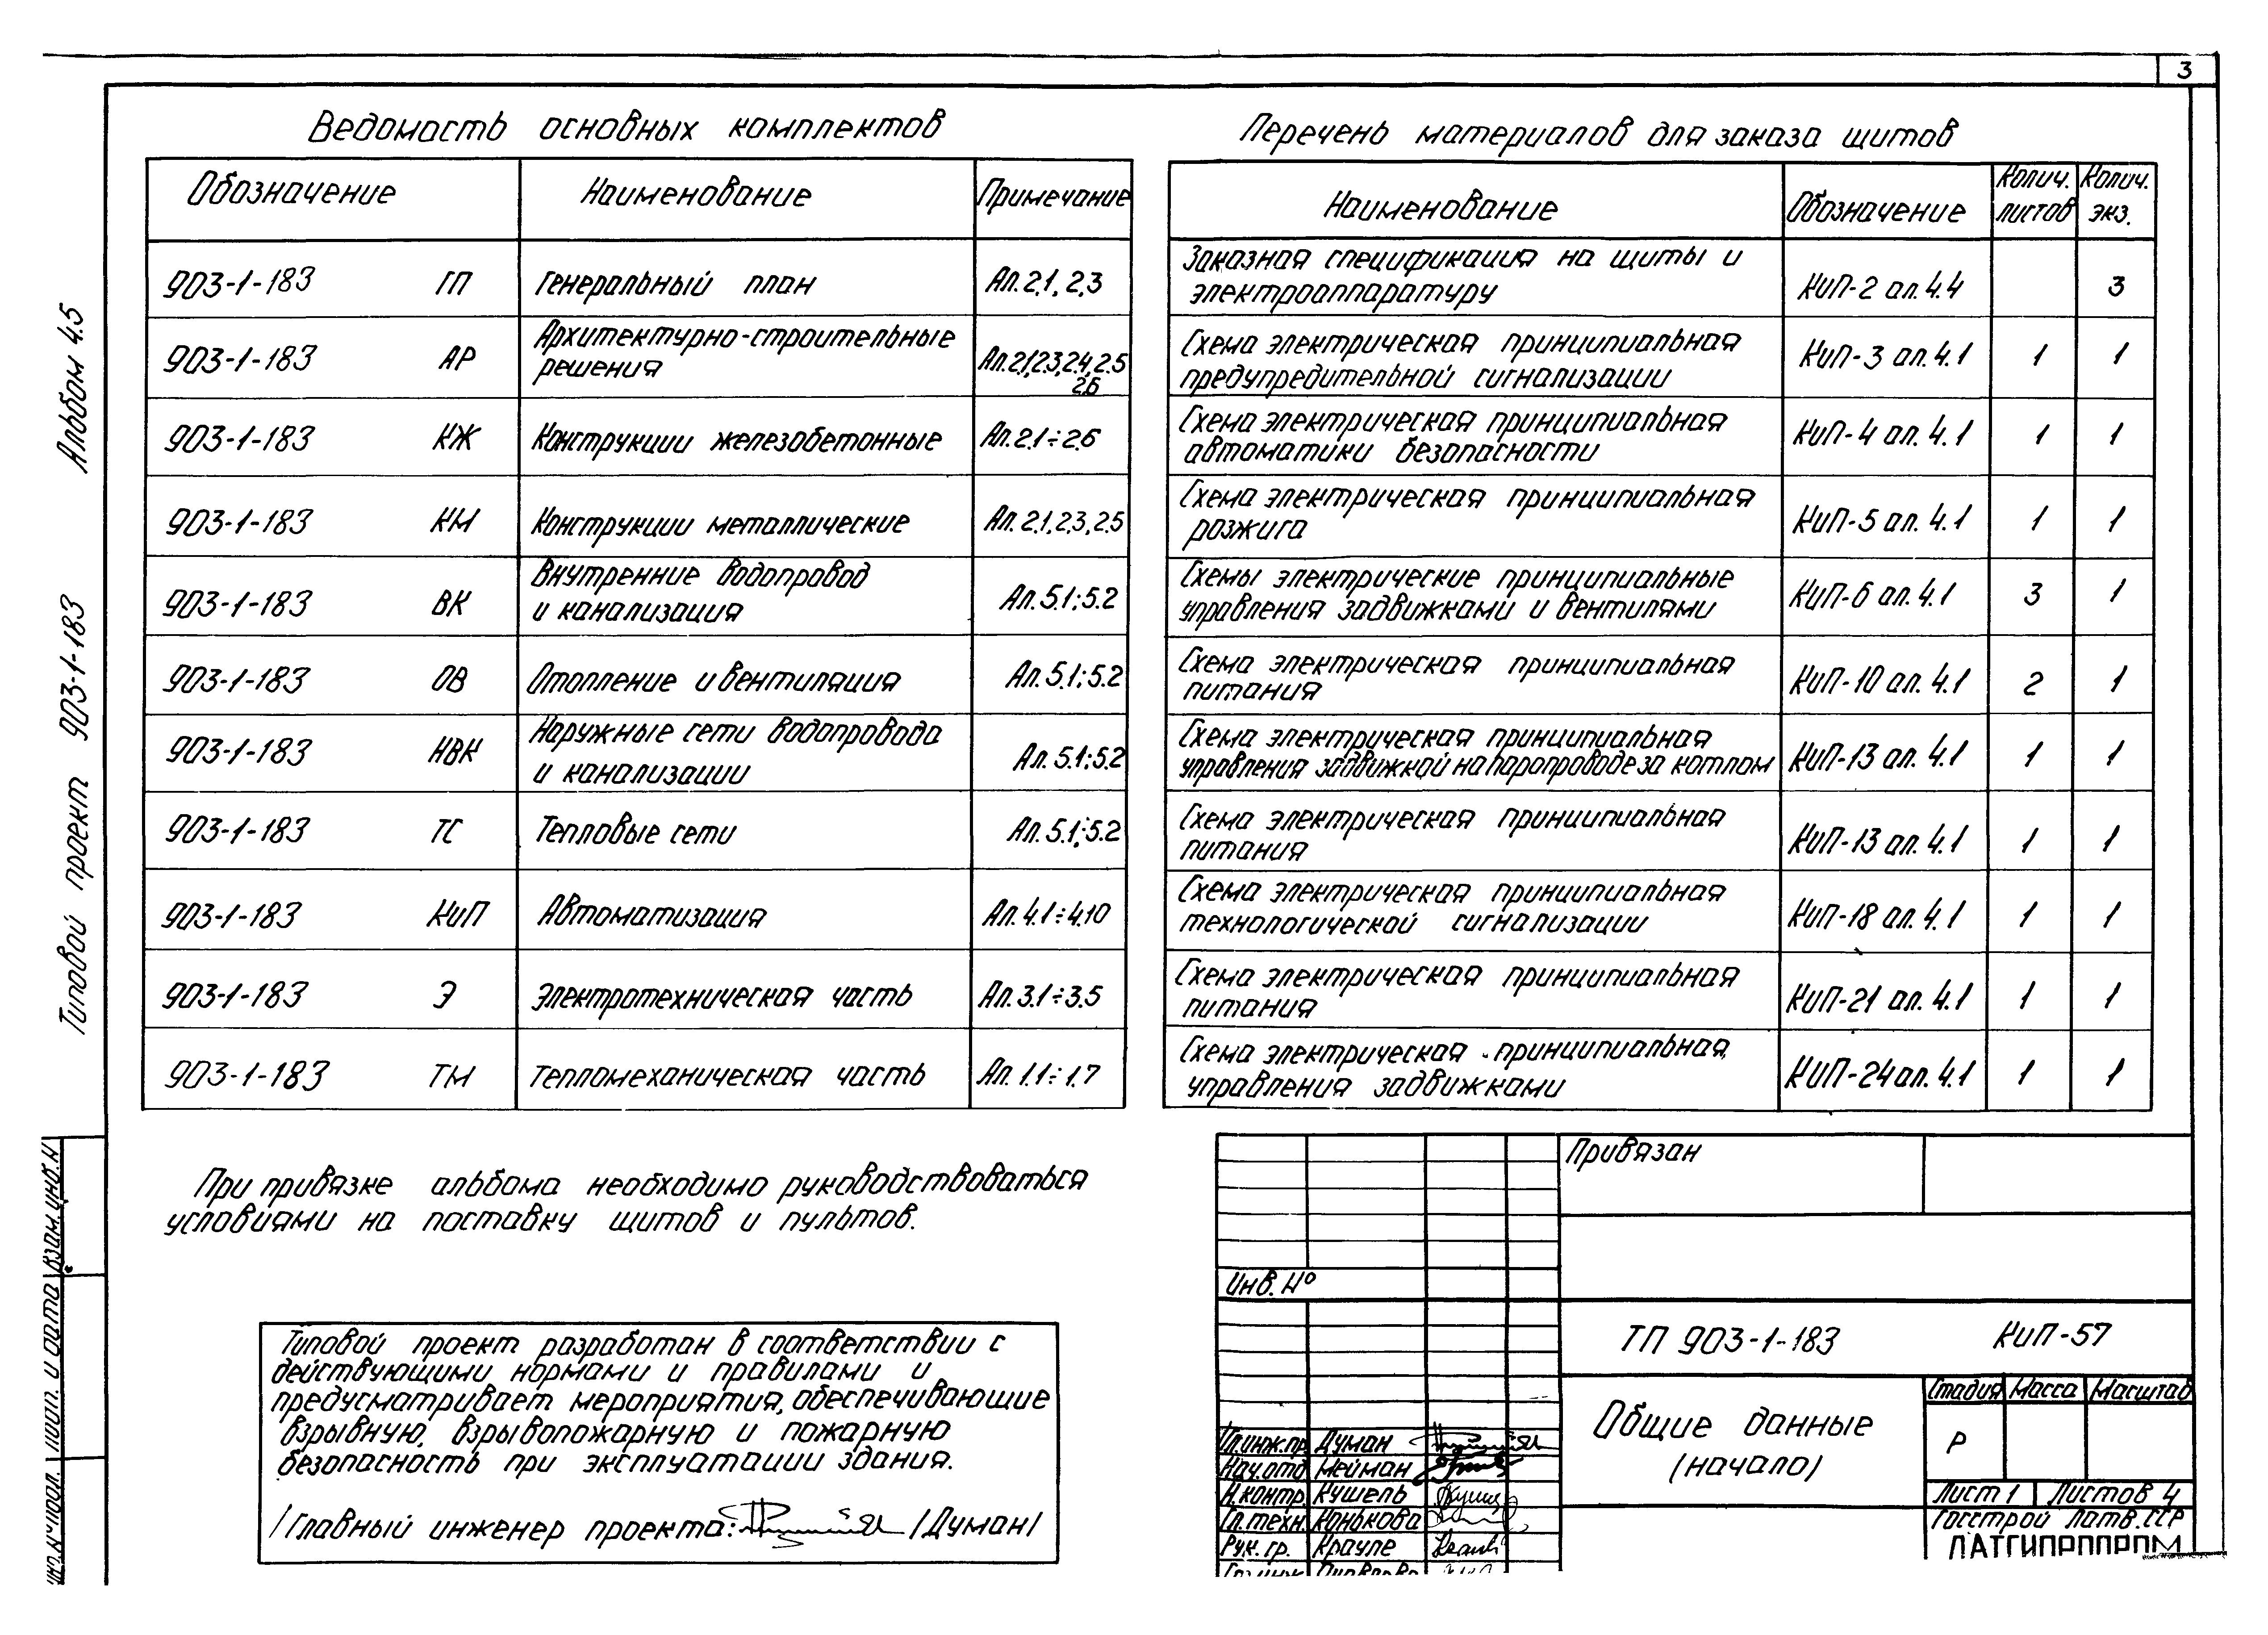 3
Ведомость основных комплектов
Обозначение Наименование Примечание
903-1-183 ГП Генеральный план Ал. 2.1, 2.3
903-1-183 АР Архитектурно-строительные
решения Ал. 2.1, 2.3, 2.4, 2.5
2.6
903-1-183 КЖ Конструкции железобетонные Ал. 2.1÷2.6
903-1-183 КМ Конструкции металлические Ал. 2.1, 2.3, 2.5
903-1-183 ВК Внутренние водопровод
и канализация Ал. 5.1; 5.2
903-1-183 ОВ Отопление и вентиляция Ал. 5.1; 5.2
903-1-183 НВК Наружные сети водопровода
и канализации Ал. 5.1; 5.2
903-1-183 ТС Тепловые сети Ал. 5.1; 5.2
903-1-183 КиП Автоматизация Ал. 4.1÷4.10
903-1-183 Э Электротехническая часть Ал. 3.1÷3.5
903-1-183 ТМ Тепломеханическая часть Ал. 1.1÷1.7
Перечень материалов для заказа щитов
Наименование Обозначение Колич. листов Колич. экз.
Заказная спецификация на щиты и
электроаппаратуру КиП-2 ал. 4.4 3
Схема электрическая принципиальная
предупредительной сигнализации КиП-3 ал. 4.1 1 1
Схема электрическая принципиальная
автоматики безопасности КиП-4 ал. 4.1 1 1
Схема электрическая принципиальная
розжига КиП-5 ал. 4.1 1 1
Схемы электрические принципиальные
управления задвижками и вентилями КиП-6 ал. 4.1 3 1
Схема электрическая принципиальная
питания КиП-10 ал. 4.1 2 1
Схема электрическая принципиальная
управления задвижкой на паропроводе за котлом КиП-13 ал. 4.1 1 1
Схема электрическая принципиальная
питания КиП-13 ал. 4.1 1 1
Схема электрическая принципиальная
технологической сигнализации КиП-18 ал. 4.1 1 1
Схема электрическая принципиальная
питания КиП-21 ал. 4.1 1 1
Схема электрическая принципиальная,
управления задвижками КиП-24 ал. 4.1 1 1
Типовой проект 903-1-183 Альбом 4.5
При привязке альбома необходимо руководствоваться
условиями на поставку щитов и пультов.
Типовой проект разработан в соответствии с
действующими нормами и правилами и
предусматривает мероприятия, обеспечивающие
взрывную, взрывопожарную и пожарную
безопасность при эксплуатации здания.
/Главный инженер проекта: /Думан/
Взам. инв. N
Подп. и дата
Инв. N подл.
Привязан
Инв. №
ТП 903-1-183 КиП-57
Общие данные
(начало)
Стадия Масса Масштаб
Р
Лист 1 Листов 4
Госстрой Латв. ССР
ЛАТГИПРОПРОМ
Гл. инж. пр. Думан
Нач. отд. Мейман
Н. контр. Кушель
Гл. техн. Конькова
Рук. гр. Крауле